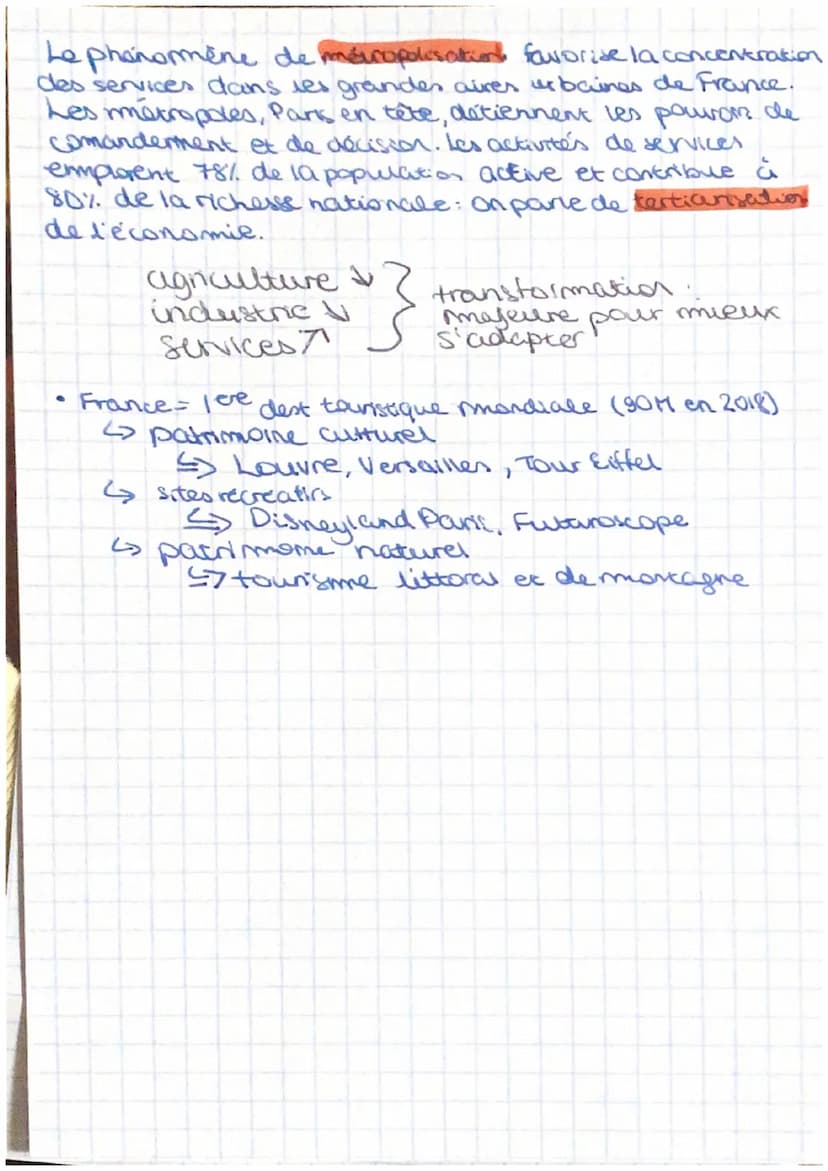 Le phénomène de métropolisation favorise la concentration
des services dans les grandes aires urbaines de France.
Les métropoles, Paris en tête, détiennent les pouvoirs de
comandement et de décision. Les activités de services
emploient 78% de la population active et contribue à
80% de la richesse nationale : on parle de tertiarisation
de l'économie.
agriculture ↓
industrie ↓
services ↗
} transformation
majeure pour mieux
s'adapter
• France = 1ère dest touristique mondiale (90M en 2018)
↳ patrimoine culturel
↳ Louvre, Versailles, Tour Eiffel
↳ sites récréatifs
↳ Disneyland Paris, Futuroscope
↳ patrimoine naturel
↳ tourisme littoral et de montagne